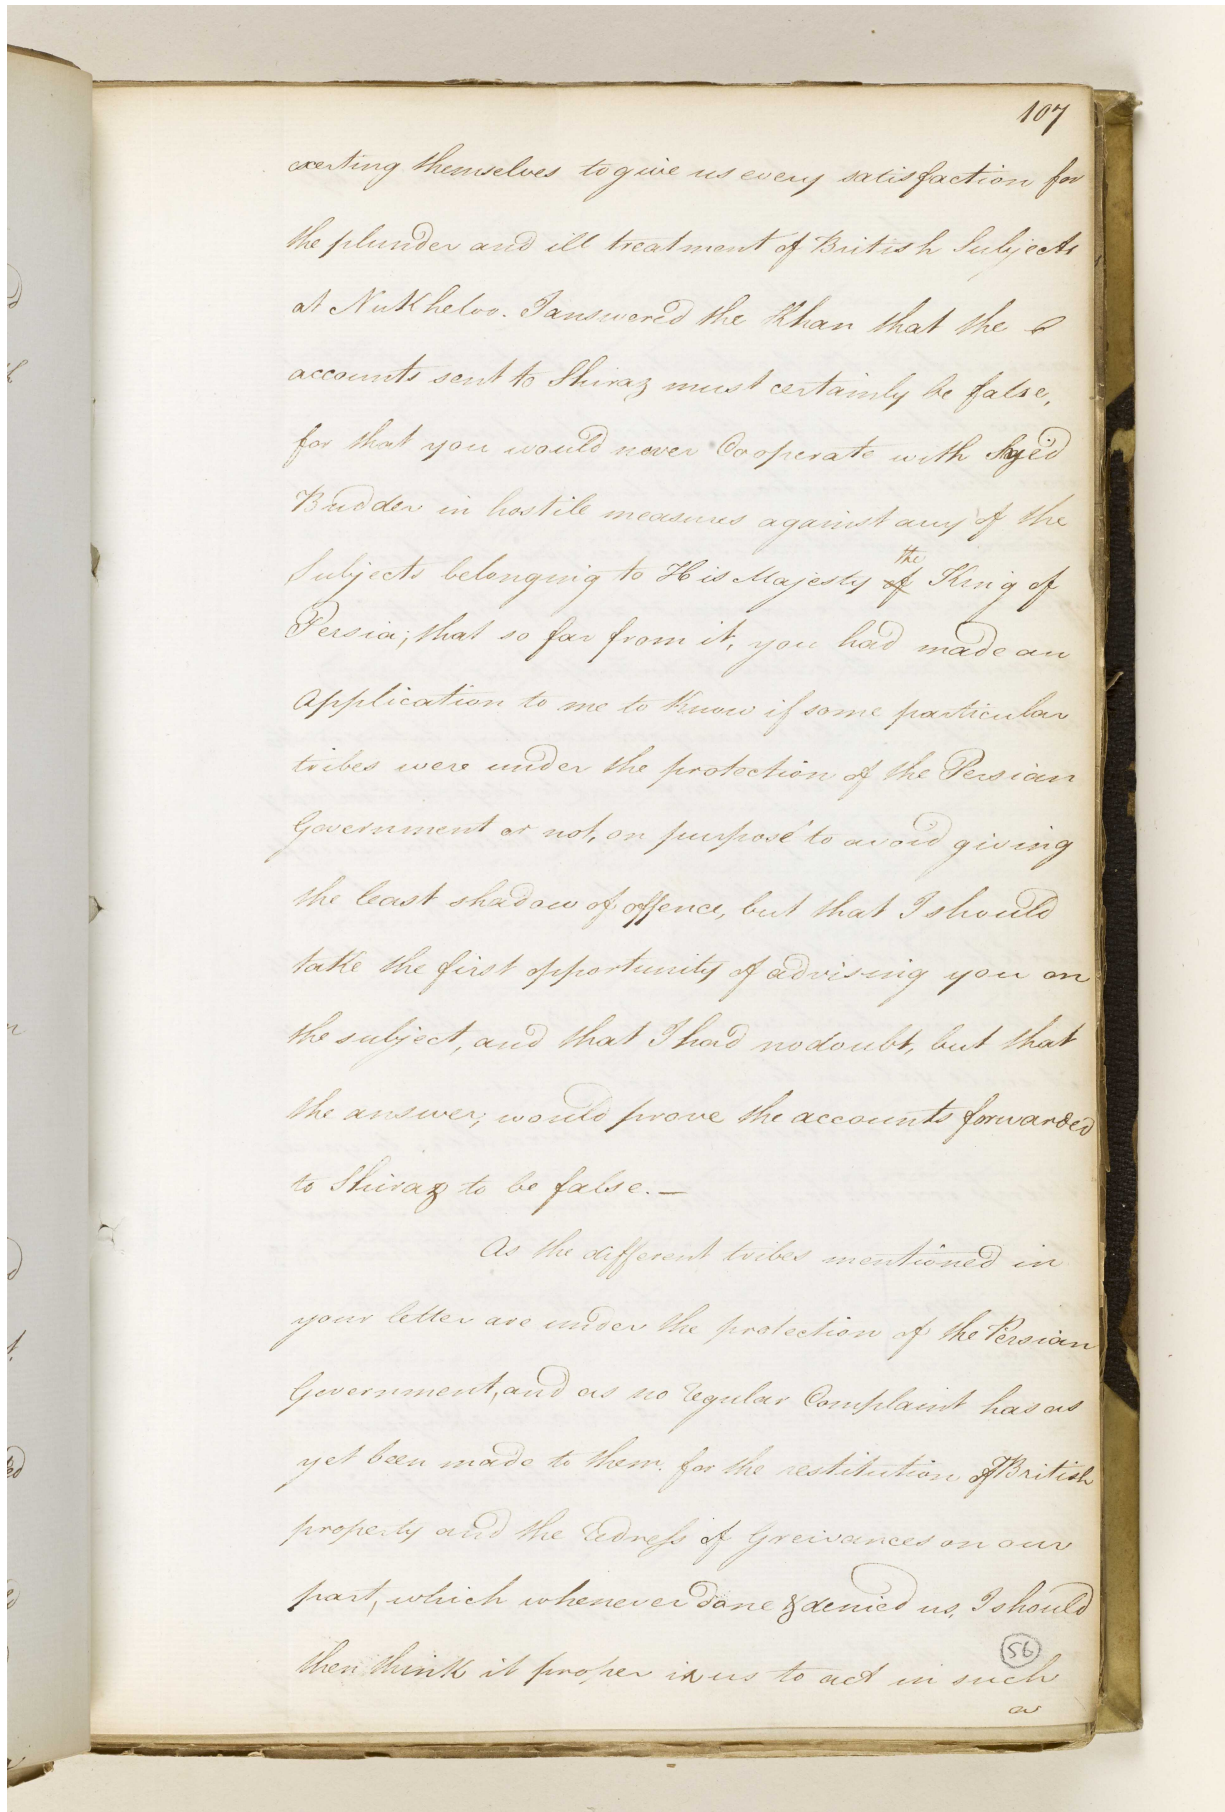 107
exerting themselves to give us every satisfaction for
the plunder and ill treatment of British Subjects
at Nukheloo. I answered the Khan that the
accounts sent to Shiraz must certainly be false,
for that you would never Cooperate with Syed
Budder in hostile measures against any of the
the
Subjects belonging to His Majesty of King of
Persia; that so far from it, you had made an
application to me to Know if some particular
tribes were under the protection of the Persian
Government or not, on purpose to avoid giving
the least shadow of offence, but that I should
take the first opportunity of advising you on
the subject, and that I had no doubt, but that
the answer, would prove the accounts forwarded
to Shiraz to be false. —
As the different tribes mentioned in
your letter are under the protection of the Persian
Government, and as no regular Complaint has as
yet been made to them for the restitution of British
property and the redress of Greivances on our
part, which whenever done & denied us, I should
then think it proper in us to act in such
56
a